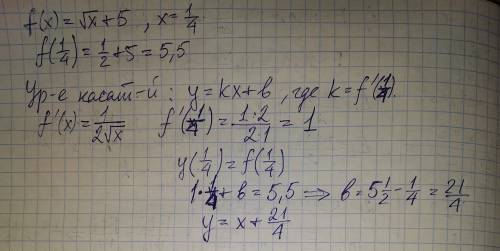 f(x) = √x + 5 , x = 1/4
f(1/4) = 1/2 + 5 = 5,5
Ур-е касат-й : y = kx + b , где k = f'(1/4).
f'(x) = 1/(2√x)   f'(1/4) = (1·2)/(2·1) = 1
y(1/4) = f(1/4)
1·1/4 + b = 5,5 ⟹ b = 5 1/2 - 1/4 = 21/4
y = x + 21/4